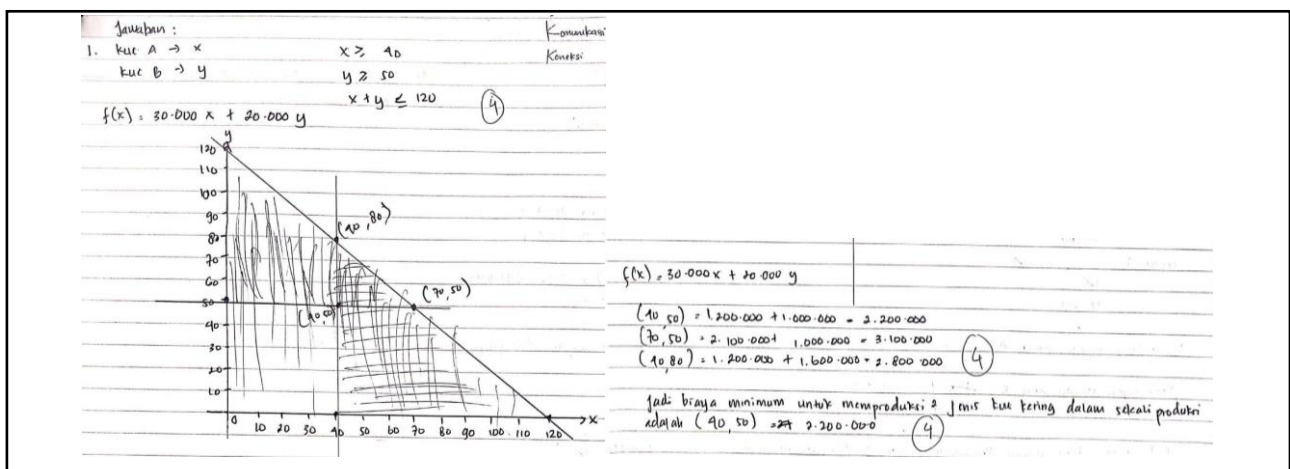 Jawaban :
Komunikasi
1. kue A → x
x ≥ 40
Koneksi
kue B → y
y ≥ 50
x + y ≤ 120
4
f(x) = 30.000 x + 20.000 y
y
120
110
100
90
80
70
60
50
40
30
20
10
(40,80)
(70,50)
(40,50)
0 10 20 30 40 50 60 70 80 90 100 110 120 x
f(x) = 30.000 x + 20.000 y
(40,50) = 1.200.000 + 1.000.000 = 2.200.000
(70,50) = 2.100.000 + 1.000.000 = 3.100.000
(40,80) = 1.200.000 + 1.600.000 = 2.800.000 4
Jadi biaya minimum untuk memproduksi 2 jenis kue kering dalam sekali produksi
adalah (40,50) = 2.200.000 4